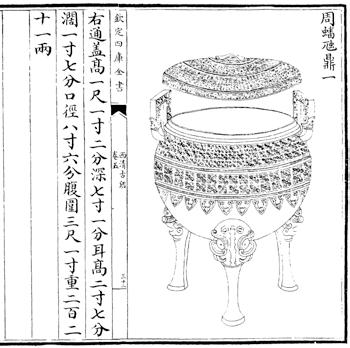 周蟠虺鼎一
欽定四庫全書
西清古鑑
卷五
右通盖高一尺一寸二分深七寸一分耳高二寸七分
濶一寸七分口徑八寸六分腹圍三尺一寸重二百二
十一兩